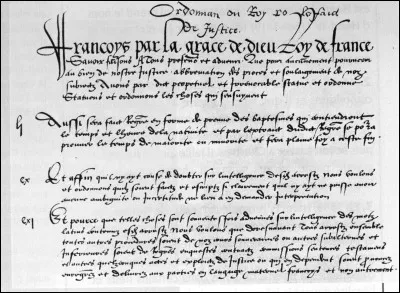 Ordonnan du Roy le faict
de Justice
Francoys par la grace de dieu Roy de france
Scavoir faisons A Tous presens et advenir Que pour aucunement pourveoir
au bien de nostre Justice abbreviation des proces et soulagement de noz
subiectz Avons par edict perpetuel et irrevocable statue et ordonne
Statuons et ordonnons les choses qui sensuyvent
Aussi sera faict Regre en forme de preuve des baptesmes qui contiendront
le temps et lheure de la nativite et par lextraict dudict Regre se pora
prouver le temps de maiorite ou minorite et fera plaine foy a ceste fin
cx Et affin quil ny ayt cause de doubter sur lintelligence desd arrestz Nous voulons
et ordonnons quilz soient faictz et escriptz si clerement quil ny ayt ne puisse avoir
aucune ambiguite ou incertitude ne lieu a en demander interpretation
cxj Et pource que telles choses sont souventesfois advenues sur lintelligence des motz
latins contenuz esd arrestz Nous voulons que doresnavant Tous arrestz ensemble
toutes autres procedures soient de noz cours souveraines ou autres subalternes et
Inferieures soient de Regres enquestes contractz commissions sentences testamens
et autres quelzconques actes et exploictz de Justice ou qui en dependent soient
et delivrez aux parties en langaige maternel francoys et non autrement